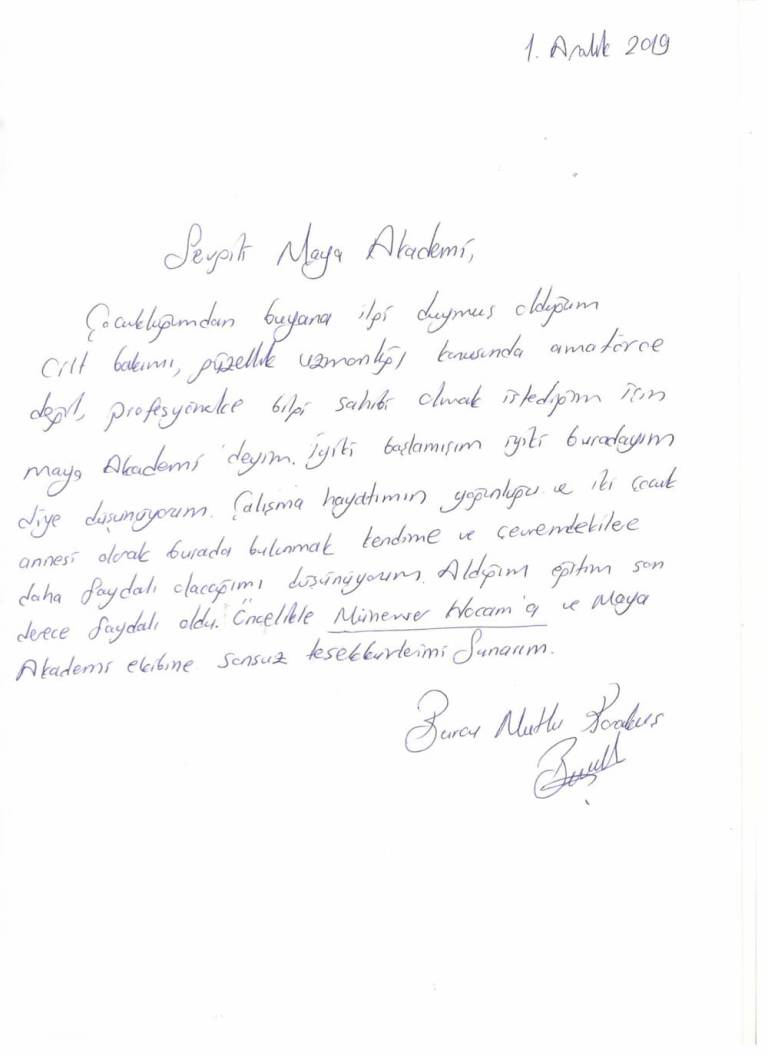 1. Aralık 2019
Sevgili Maya Akademi,
Çocukluğumdan buyana ilgi duymuş olduğum
cilt bakımı, güzellik uzmanlığı konusunda amatörce
değil, profesyonelce bilgi sahibi olmak istediğim için
Maya Akademi'deyim. İyiki başlamışım iyiki buradayım
diye düşünüyorum. Çalışma hayatımın yoğunluğu ve iki çocuk
annesi olarak burada bulunmak kendime ve çevremdekilere
daha faydalı olacağımı düşünüyorum. Aldığım eğitim son
derece faydalı oldu. Öncelikle Münevver Hocam'a ve Maya
Akademi ekibine sonsuz teşekkürlerimi Sunarım.
Burcu Mutlu